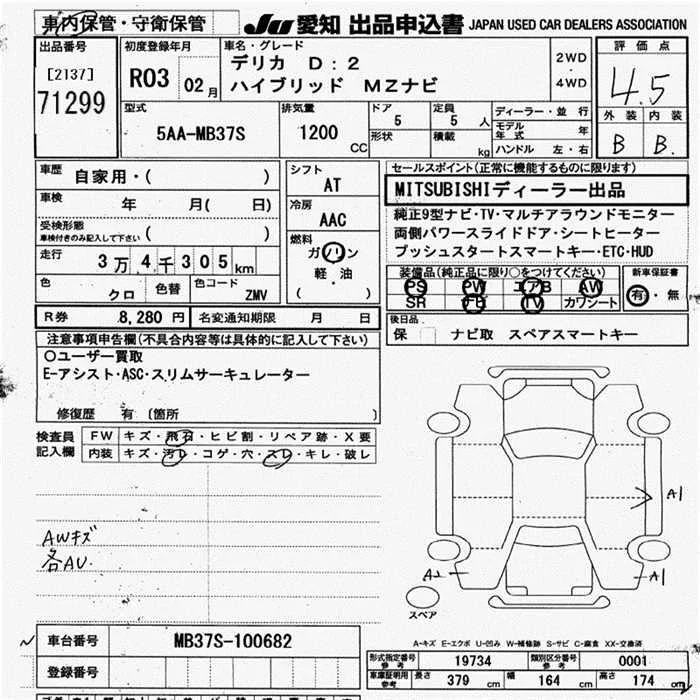 車内保管・守衛保管
JU 愛知 出品申込書 JAPAN USED CAR DEALERS ASSOCIATION
出品番号
[2137]
71299
初度登録年月
R03 02 月
車名・グレード
デリカ D:2
ハイブリッド MZナビ
2WD
・
4WD
評価点
4.5
外装 内装
B B.
型式
5AA-MB37S
排気量
1200 CC
ドア 5
形状
定員 5 人
積載 kg
ディーラー・並行
モデル年式 年
ハンドル 左・右
車歴
自家用・( )
車検 年 月( 日)
受検形態
車検付きのみ記入して下さい ( )
走行 3万4千305km
色 クロ 色替 色コード ZMV
シフト
AT
冷房
AAC
燃料
ガソリン
軽・油
( )
セールスポイント(正常に機能するものに限ります)
MITSUBISHIディーラー出品
純正9型ナビ・TV・マルチアラウンドモニター
両側パワースライドドア・シートヒーター
プッシュスタートスマートキー・ETC・HUD
装備品(純正品に限り○をつけてください)
PS PW エアB AW
SR TV カワシート
新車保証書
有・無
R券 8,280 円 名変通知期限 月 日
後日品
保 ナビ取 スペアスマートキー
注意事項申告欄(不具合内容等は具体的に記入して下さい)
○ユーザー買取
E-アシスト・ASC・スリムサーキュレーター
修復歴 有 〔箇所 〕
検査員記入欄
FW キズ・飛石・ヒビ割・リペア跡・X要
内装 キズ・汚レ・コゲ・穴・スレ・キレ・破レ
AWキズ
各AU.
A1
A2
A1
スペア
A-キズ E-エクボ U-凹み W-補修跡 S-サビ C-腐食 XX-交換済
車台番号 MB37S-100682
登録番号
形式指定番号 参考 19734 類別区分番号 参考 0001
車庫証明用 参考 長さ 379 cm 幅 164 cm 高さ 174 cm